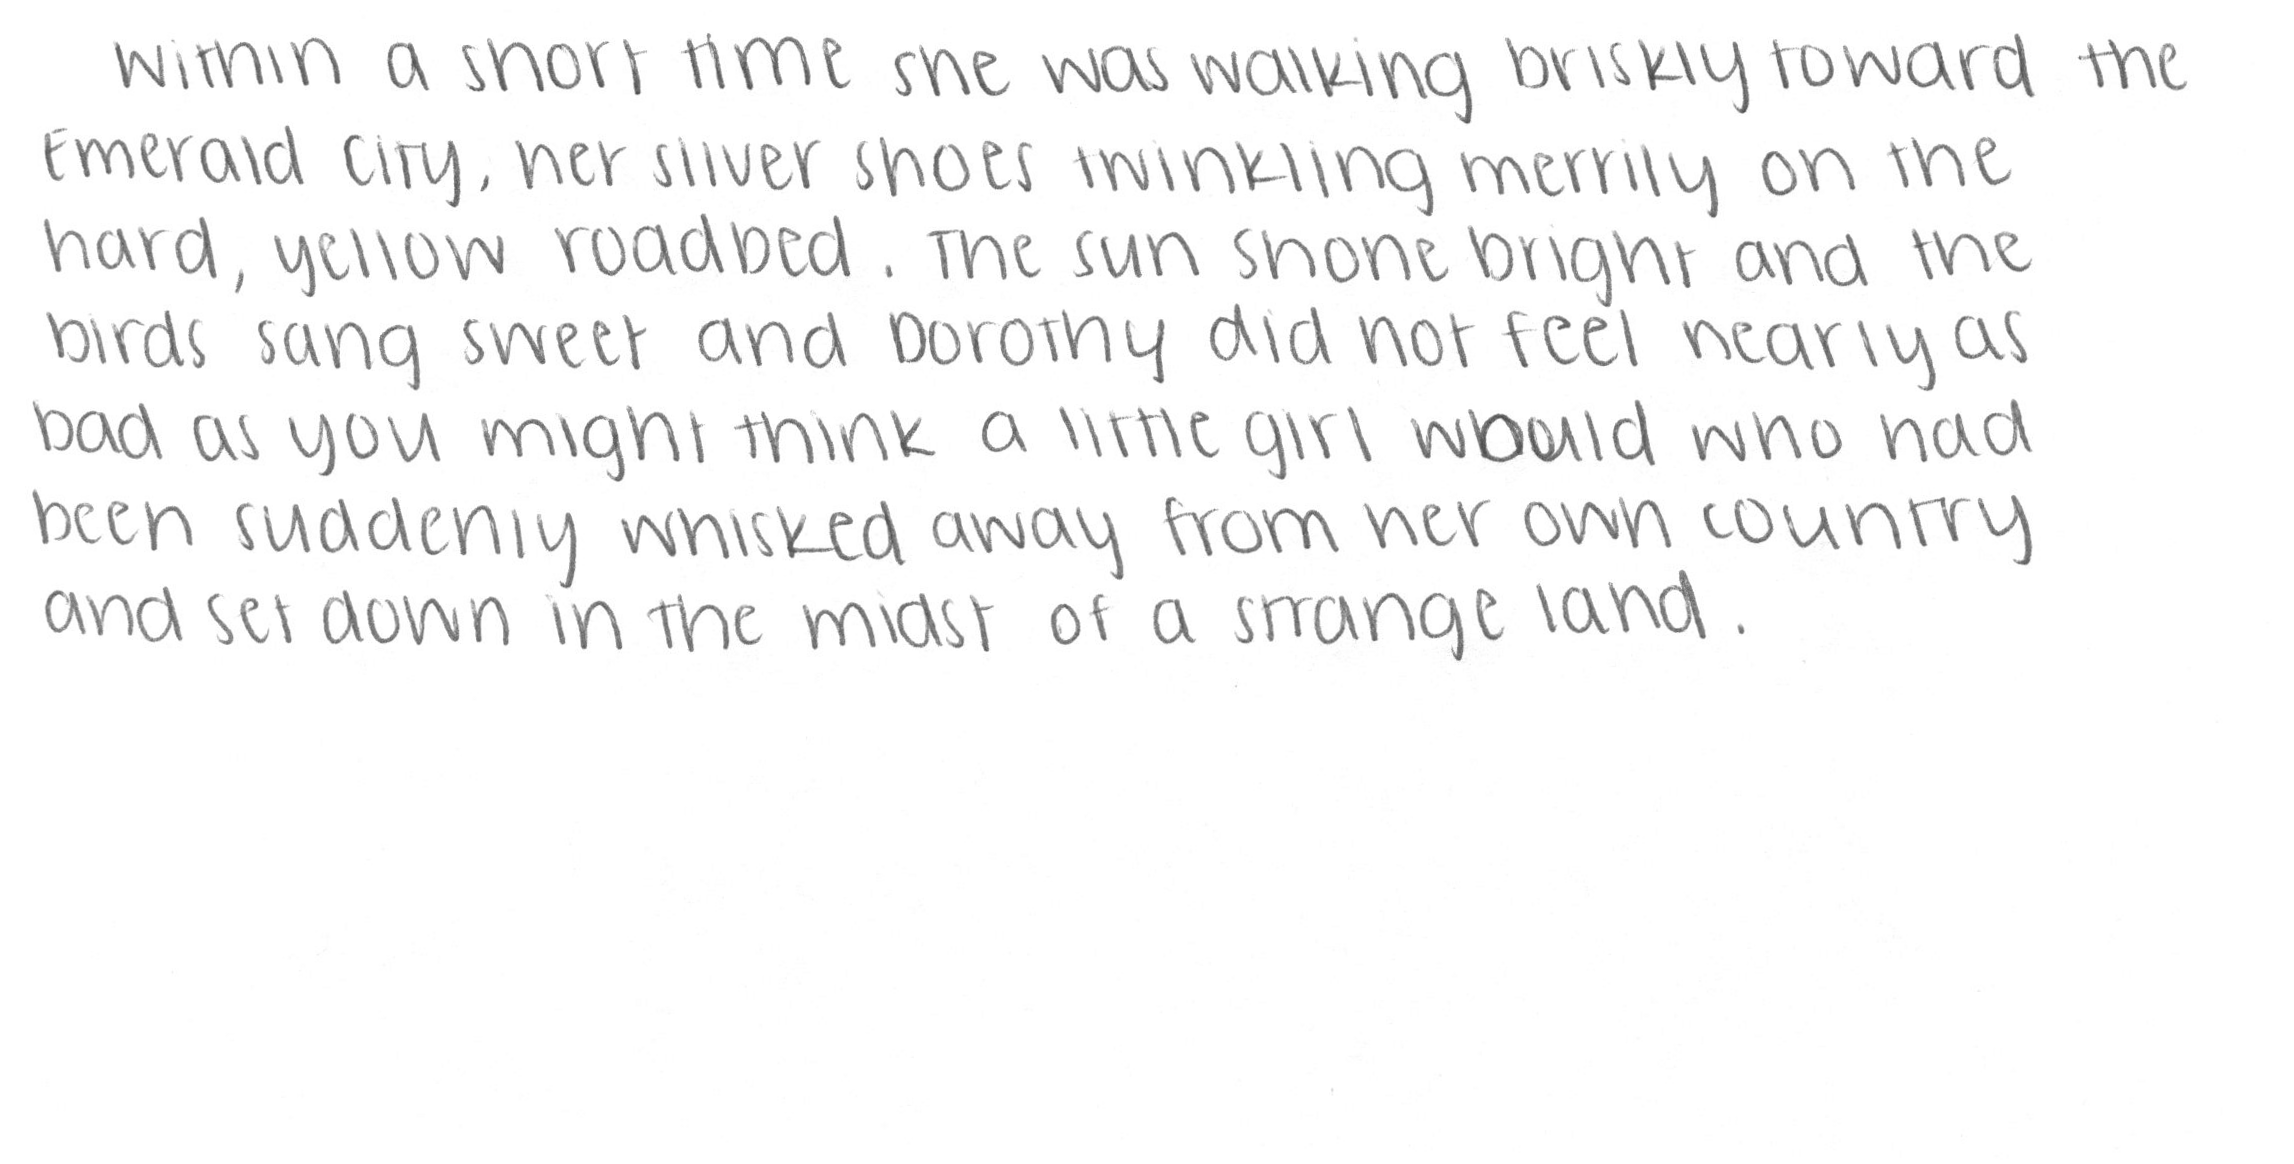 Within a short time she was walking briskly toward the
Emerald City, her silver shoes twinkling merrily on the
hard, yellow roadbed. The sun shone bright and the
birds sang sweet and Dorothy did not feel nearly as
bad as you might think a little girl would who had
been suddenly whisked away from her own country
and set down in the midst of a strange land.